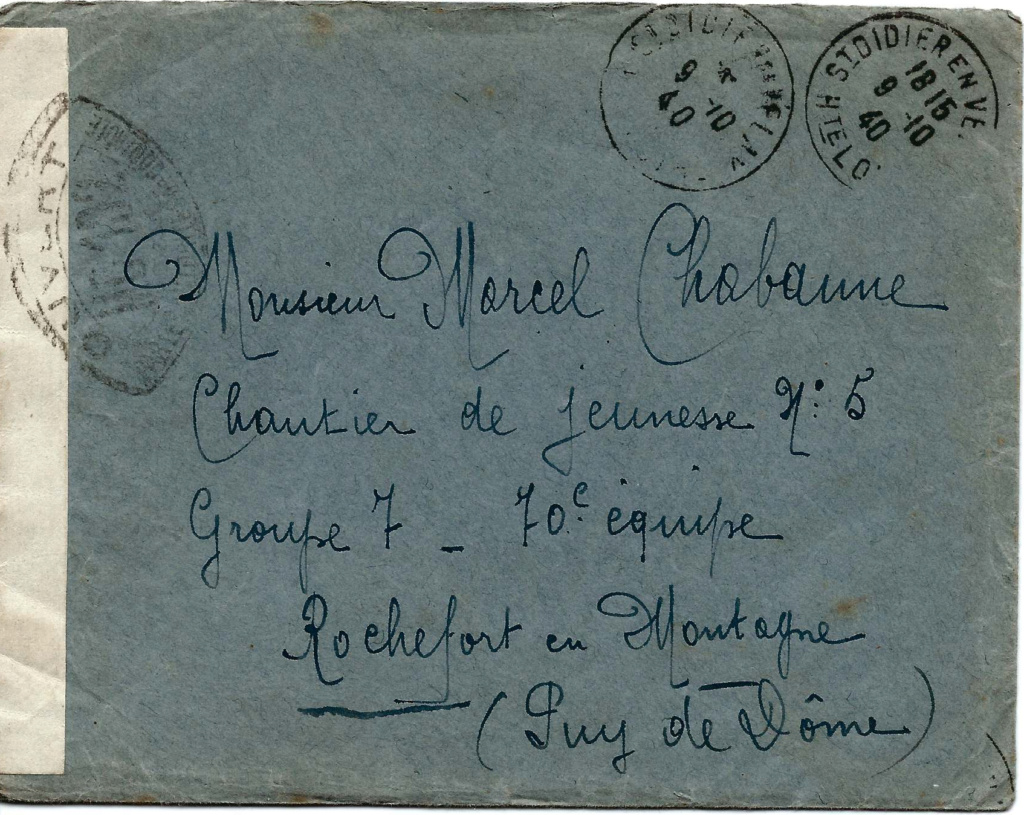 ST DIDIER EN VELAY
9 * -10 40
ST DIDIER EN VE.
HTE LO.
18 15
9 -10
40
Monsieur Marcel Chabanne
Chantier de jeunesse N: 5
Groupe 7 - 70e équipe
Rochefort en Montagne
(Puy de Dôme)